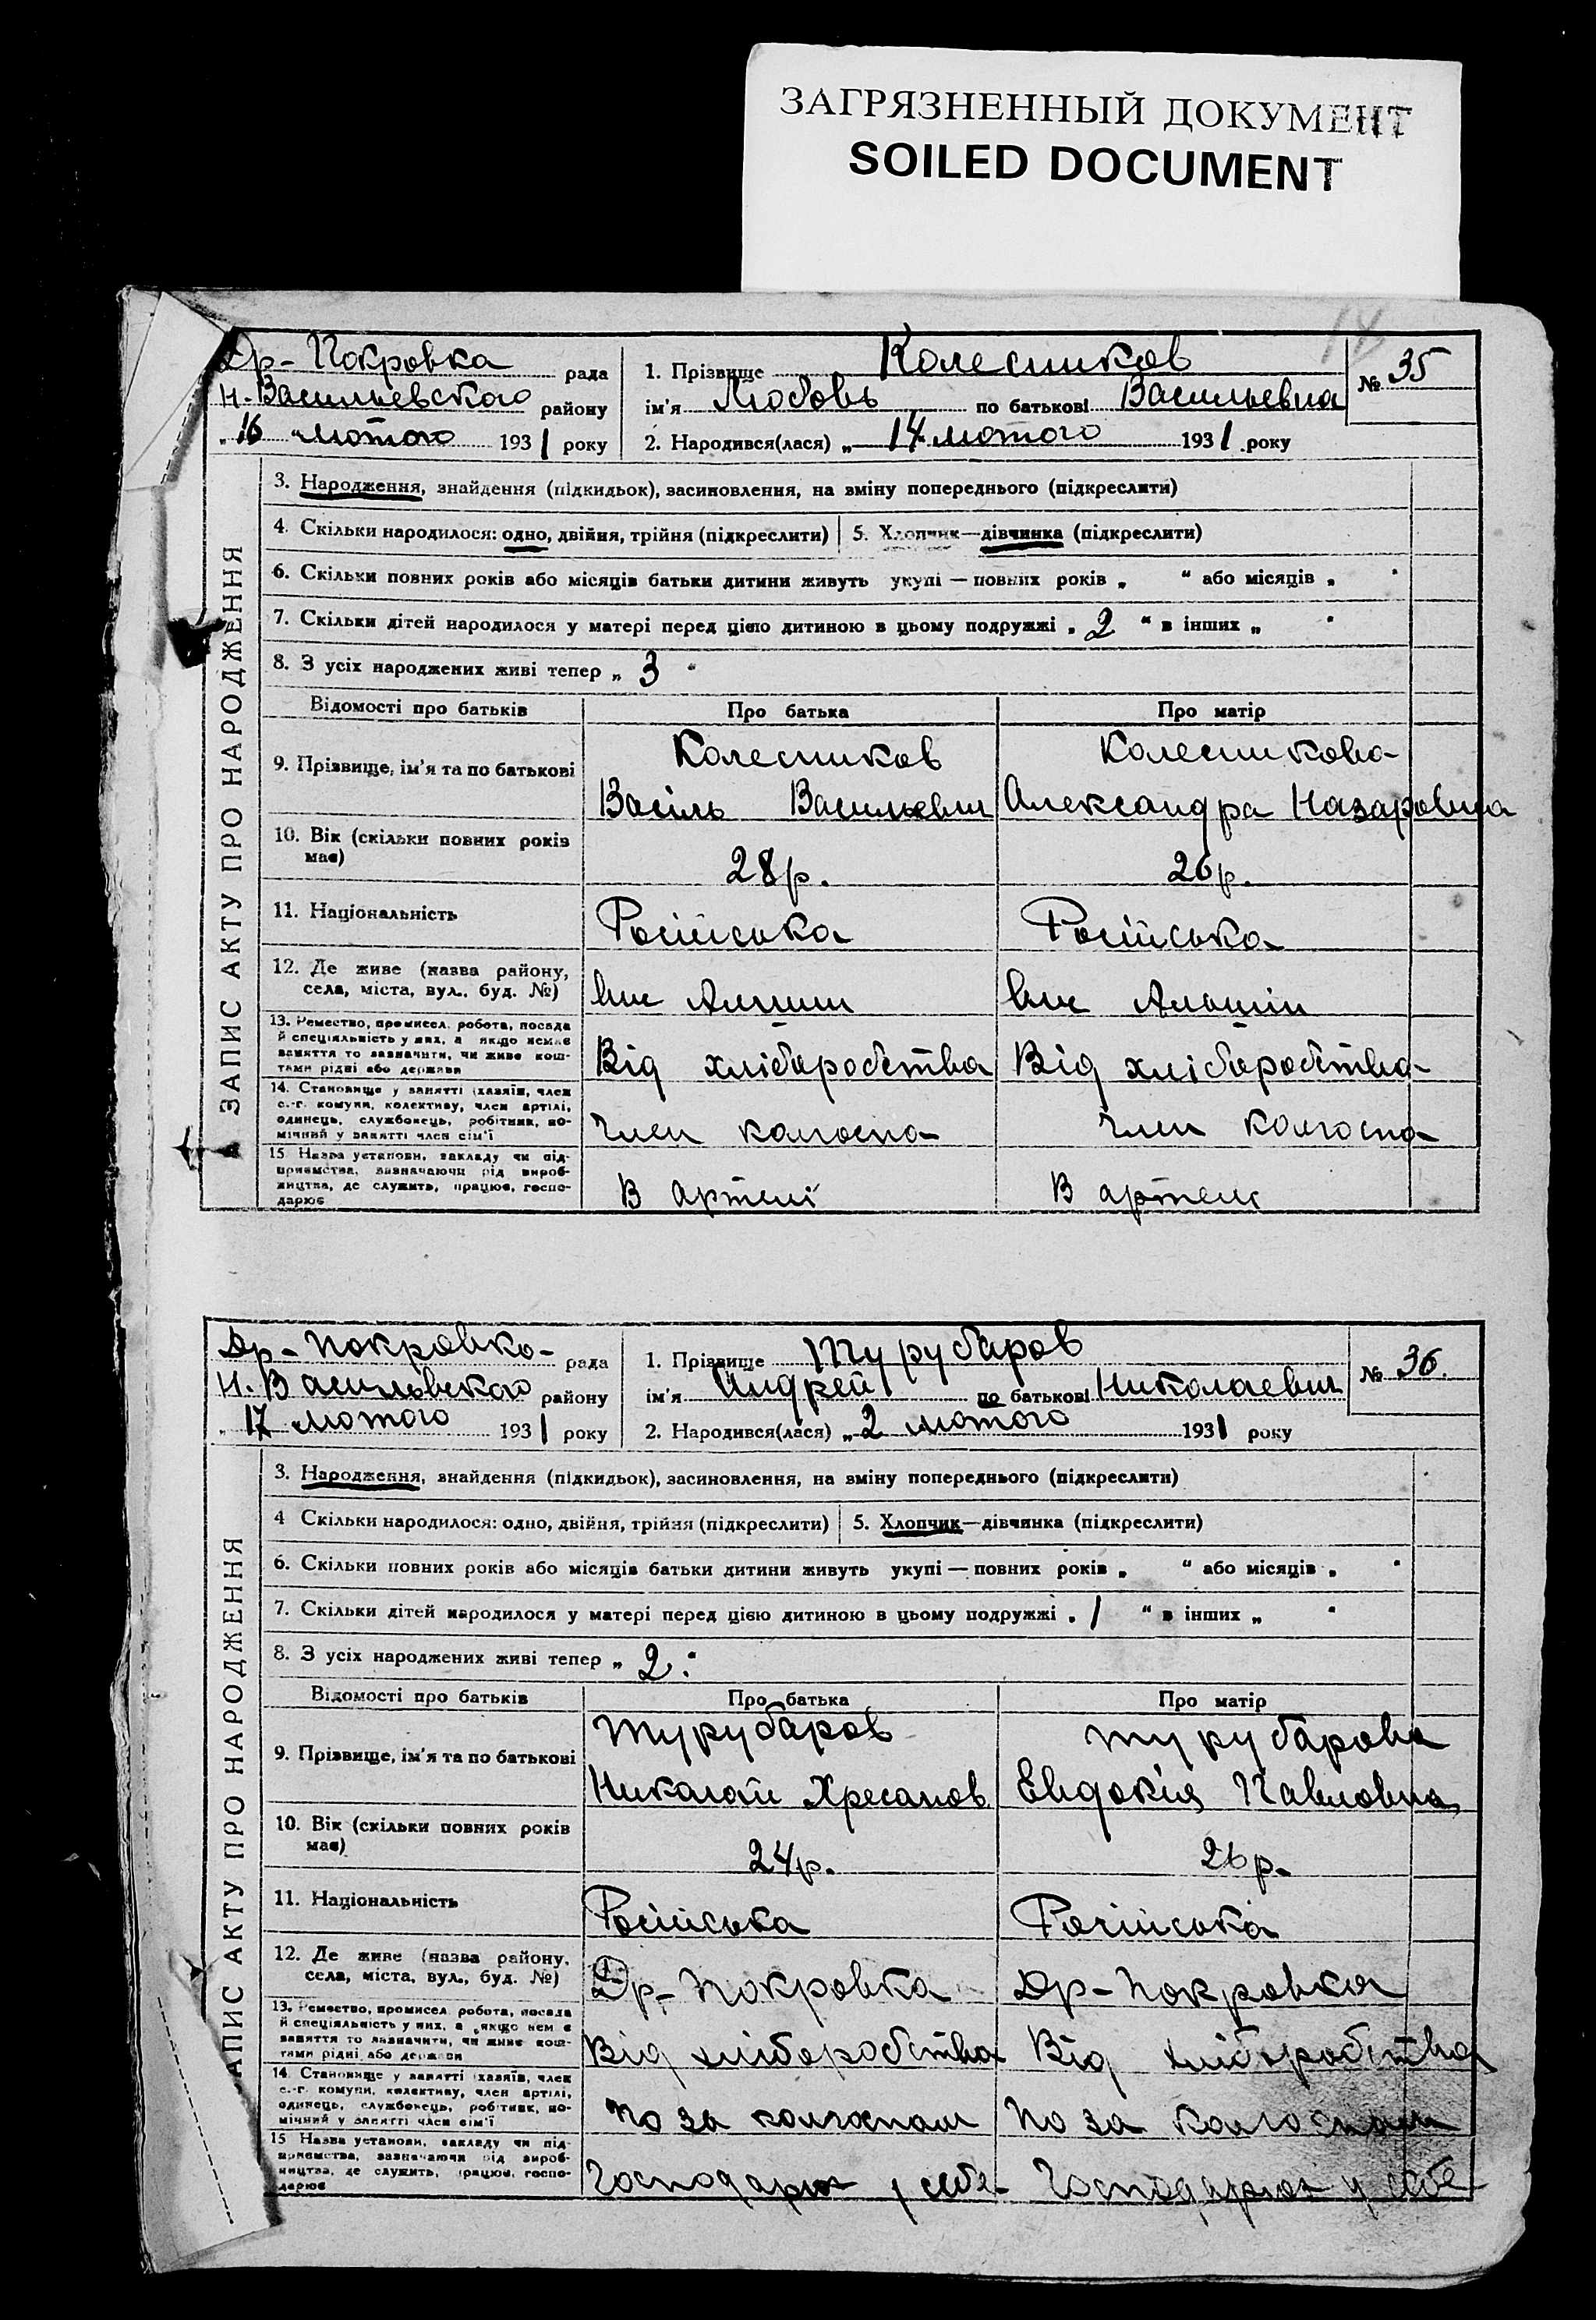 ЗАГРЯЗНЕННЫЙ ДОКУМЕНТ
SOILED DOCUMENT
Др-Покровка рада
Н-Васильевского району
„16 "лютого 1931 року
1. Прізвище Колесников
ім'я Любовь по батькові Васильевна
2. Народився(лася) „14 лютого 1931 року
№ 35
ЗАПИС АКТУ ПРО НАРОДЖЕННЯ
3. Народження, знайдення (підкидьок), засиновлення, на зміну попереднього (підкреслити)
4. Скільки народилося: одно, двійня, трійня (підкреслити) 5. Хлопчик—дівчинка (підкреслити)
6. Скільки повних років або місяців батьки дитини живуть укупі — повних років „ " або місяців „ "
7. Скільки дітей народилося у матері перед цією дитиною в цьому подружжі „ 2 " в інших „ "
8. З усіх народжених живі тепер „ 3 "
Відомості про батьків Про батька Про матір
9. Прізвище, ім'я та по батькові
Колесников Колесникова
Васіль Васильевич Александра Назаровна
10. Вік (скільки повних років має)
28 р. 26 р.
11. Національність Російська Російська
12. Де живе (назва району, села, міста, вул., буд. №)
13. Ремество, промисел, робота, посада й спеціяльність у них, а якщо немає заняття то зазначити, чи живе коштами рідні або держави
Від хліборобства Від хліборобства
14. Становище у занятті (хазяїн, член с.-г. комуни, колективу, член артілі, одинець, службовець, робітник, помічний у занятті член сім'ї
Член колгоспа Член колгоспа
15 Назва установи, закладу чи підприємства, зазначаючи рід виробництва, де служить, працює, господарює
В артелі В артелі
Др-Покровка рада
Н. Васильевского району
„17 лютого 1931 року
1. Прізвище Турубаров
ім'я Андрей по батькові Николаевич
2. Народився(лася) „2 лютого 1931 року
№ 36.
ЗАПИС АКТУ ПРО НАРОДЖЕННЯ
3. Народження, знайдення (підкидьок), засиновлення, на зміну попереднього (підкреслити)
4 Скільки народилося: одно, двійня, трійня (підкреслити) 5. Хлопчик—дівчинка (підкреслити)
6. Скільки повних років або місяців батьки дитини живуть укупі — повних років „ " або місяців „ "
7. Скільки дітей народилося у матері перед цією дитиною в цьому подружжі „ 1 " в інших „ "
8. З усіх народжених живі тепер „ 2. "
Відомості про батьків Про батька Про матір
9. Прізвище, ім'я та по батькові
Турубаров Турубарова
Николай Хресанов Евдокія Павловна
10. Вік (скільки повних років має)
24 р. 26 р.
11. Національність Російська Російська
12. Де живе (назва району, села, міста, вул., буд. №)
Др-Покровка Др-Покровка
13. Ремество, промисел, робота, посада й спеціяльність у них, а якщо немає заняття то зазначити, чи живе коштами рідні або держави
Від хліборобства Від хліборобства
14. Становище у занятті (хазяїн, член с.-г. комуни, колективу, член артілі, одинець, службовець, робітник, помічний у занятті член сім'ї
По за колгоспом По за колгоспом
15 Назва установи, закладу чи підприємства, зазначаючи рід виробництва, де служить, працює, господарює
Господарює у себе Господарює у себе